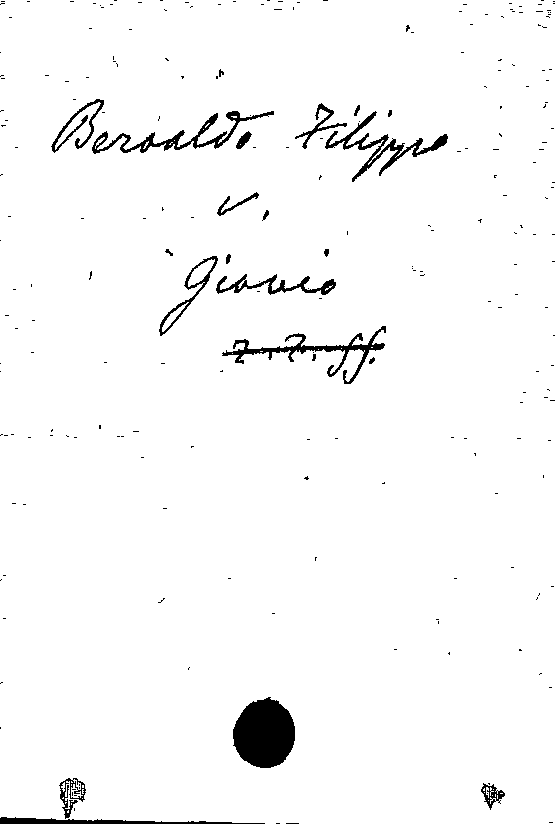 Beroaldo Filippo
v.
Giovio